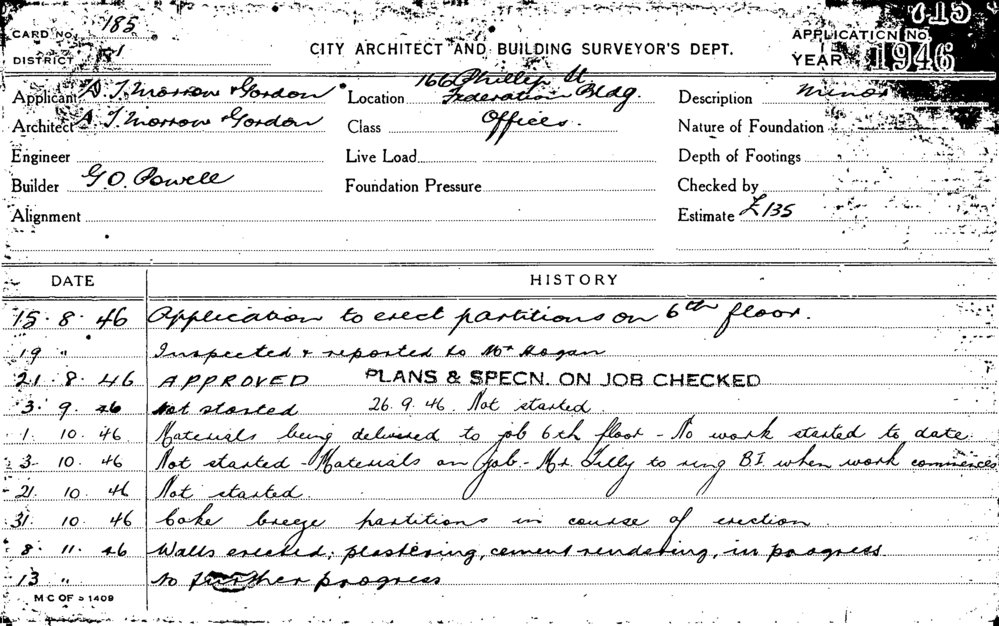 CARD No. 185
DISTRICT
CITY ARCHITECT AND BUILDING SURVEYOR'S DEPT.
715
APPLICATION No.
YEAR 1946
Applicant D. T. Morrow & Gordon
Location 166 Phillip St.
Federation Bldg.
Description Minor
Architect D. T. Morrow & Gordon
Class Offices.
Nature of Foundation
Engineer
Live Load
Depth of Footings
Builder G.O. Powell
Foundation Pressure
Checked by
Alignment
Estimate £135
DATE HISTORY
15. 8. 46 Application to erect partitions on 6th floor.
19 " Inspected & reported to Mr Hogan
21. 8. 46 APPROVED PLANS & SPECN. ON JOB CHECKED
3. 9. 46 Not started 26. 9. 46. Not started.
1. 10. 46. Materials being delivered to job 6th floor - No work started to date.
3. 10. 46 Not started - Materials on job - Mr. Lilly to ring B.I. when work commences
21. 10. 46 Not started.
31. 10. 46 Coke breeze partitions in course of erection.
8. 11. 46 Walls erected; plastering, cement rendering, in progress.
13 " No further progress
M C OF S 1409